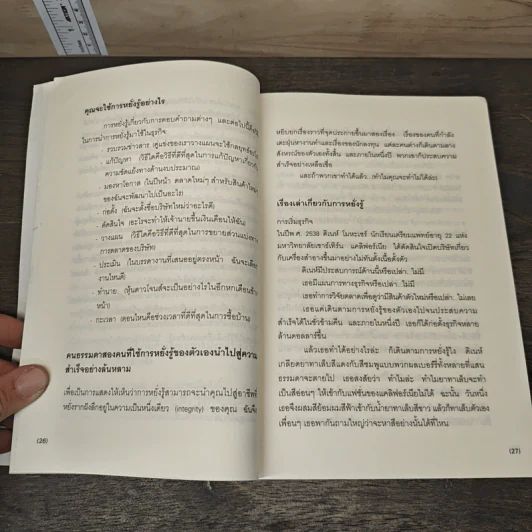 คุณจะใช้การหยั่งรู้อย่างไร
การหยั่งรู้เกี่ยวกับการตอบคำถามต่างๆ และต่อไปนี้
ในการนำการหยั่งรู้มาใช้ในธุรกิจ
- รวบรวมข่าวสาร (คู่แข่งของเราวางแผนจะใช้กลยุทธ์
- แก้ปัญหา (วิธีใดคือวิธีที่ดีที่สุดในการแก้ปัญหาเกี่ยว
ความขัดแย้งทางด้านงบประมาณ)
- มองหาโอกาส (ในปีหน้า ตลาดใหม่ๆ สำหรับสินค้า
ของฉันจะพัฒนาไปเป็นอะไร)
- ก่อตั้ง (ฉันจะตั้งชื่อบริษัทใหม่ว่าอะไรดี)
- ตัดสินใจ (อะไรจะทำให้เจ้านายขึ้นเงินเดือนให้ฉัน)
- วางแผน (วิธีใดคือวิธีที่ดีที่สุดในการขยายส่วนแบ่งทาง
การตลาดของบริษัท)
- ประเมิน (ในบรรดางานที่เสนออยู่ตรงหน้า ฉันจะเลือก
งานไหนดี)
- ทำนาย (หุ้นดาวโจนส์จะเป็นอย่างไรในอีกหกเดือนข้าง
หน้า)
- กะเวลา (ตอนไหนคือช่วงเวลาที่ดีที่สุดในการซื้อบ้าน)
คนธรรมดาสองคนที่ใช้การหยั่งรู้ของตัวเองนำไปสู่ความ
สำเร็จอย่างล้นหลาม
เพื่อเป็นการแสดงให้เห็นว่าการหยั่งรู้สามารถจะนำคุณไปสู่อาชีพที่
หยั่งรากฝังลึกอยู่ในความเป็นหนึ่งเดียว (integrity) ของคุณ ฉันจึง
(26)
หยิบยกเรื่องราวที่จุดประกายขึ้นมาสองเรื่อง เรื่องของคนที่กำลัง
เตะฝุ่นหางานทำและเรื่องของนักลงทุน แต่ละคนต่างก็เดินตามลาง
สังหรณ์ของตัวเองทั้งสิ้น และภายในหนึ่งปี พวกเขาก็ประสบความ
สำเร็จอย่างเหลือเชื่อ
และถ้าพวกเขาทำได้แล้ว (ทำไมคุณจะทำไม่ได้ล่ะ)
เรื่องเล่าเกี่ยวกับการหยั่งรู้
การเริ่มธุรกิจ
ในปีพ.ศ. 2538 ดิเนห์ โมหะเชอร์ นักเรียนเตรียมแพทย์อายุ 22 แห่ง
มหาวิทยาลัยเซาเธิร์น แคลิฟอร์เนีย ได้ตัดสินใจเปิดบริษัทเกี่ยว
กับเครื่องสำอางขึ้นมาอย่างไม่ทันตั้งเนื้อตั้งตัว
ดิเนห์มีประสบการณ์ด้านนี้หรือเปล่า.. ไม่มี
เธอมีแผนการทางธุรกิจหรือเปล่า.. ไม่มี
เธอทำการวิจัยตลาดเพื่อดูว่ามีสินค้าตัวใหม่หรือเปล่า.. ไม่เลย
เธอแค่เดินตามการหยั่งรู้ของตัวเองไปจนประสบความ
สำเร็จได้ในชั่วข้ามคืน และภายในหนึ่งปี เธอก็ได้ก่อตั้งธุรกิจหลาย
ล้านดอลลาร์ขึ้น
แล้วเธอทำได้อย่างไรล่ะ ก็เดินตามการหยั่งรู้ไง ดิเนห์
เกลียดยาทาเล็บสีแดงกับสีชมพูแบบพวกผมเบอร์รี่ทั้งหลายที่แสน
ธรรมดาจะตายไป เธอสงสัยว่า ทำไมล่ะ ทำไมยาทาเล็บจะทำ
เป็นสีอ่อนๆ ให้เข้ากับแฟชั่นของแคลิฟอร์เนียไม่ได้ ฉะนั้น วันหนึ่ง
เธอจึงผสมสีย้อมผมสีฟ้าเข้ากับน้ำยาทาเล็บสีขาว แล้วก็ทาเล็บตัวเอง
เพื่อนๆ เธอพากันถามใหญ่ว่าจะหาสีอย่างนั้นได้ที่ไหน
(27)